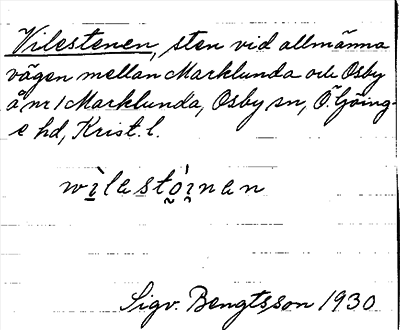 Vilestenen, sten vid allmänna
vägen mellan Marklunda och Osby
å nr 1 Marklunda, Osby sn, Ö. Göing-
e hd, Krist. l.
wìlastǫ́i̯nan
Sigv. Bengtsson 1930